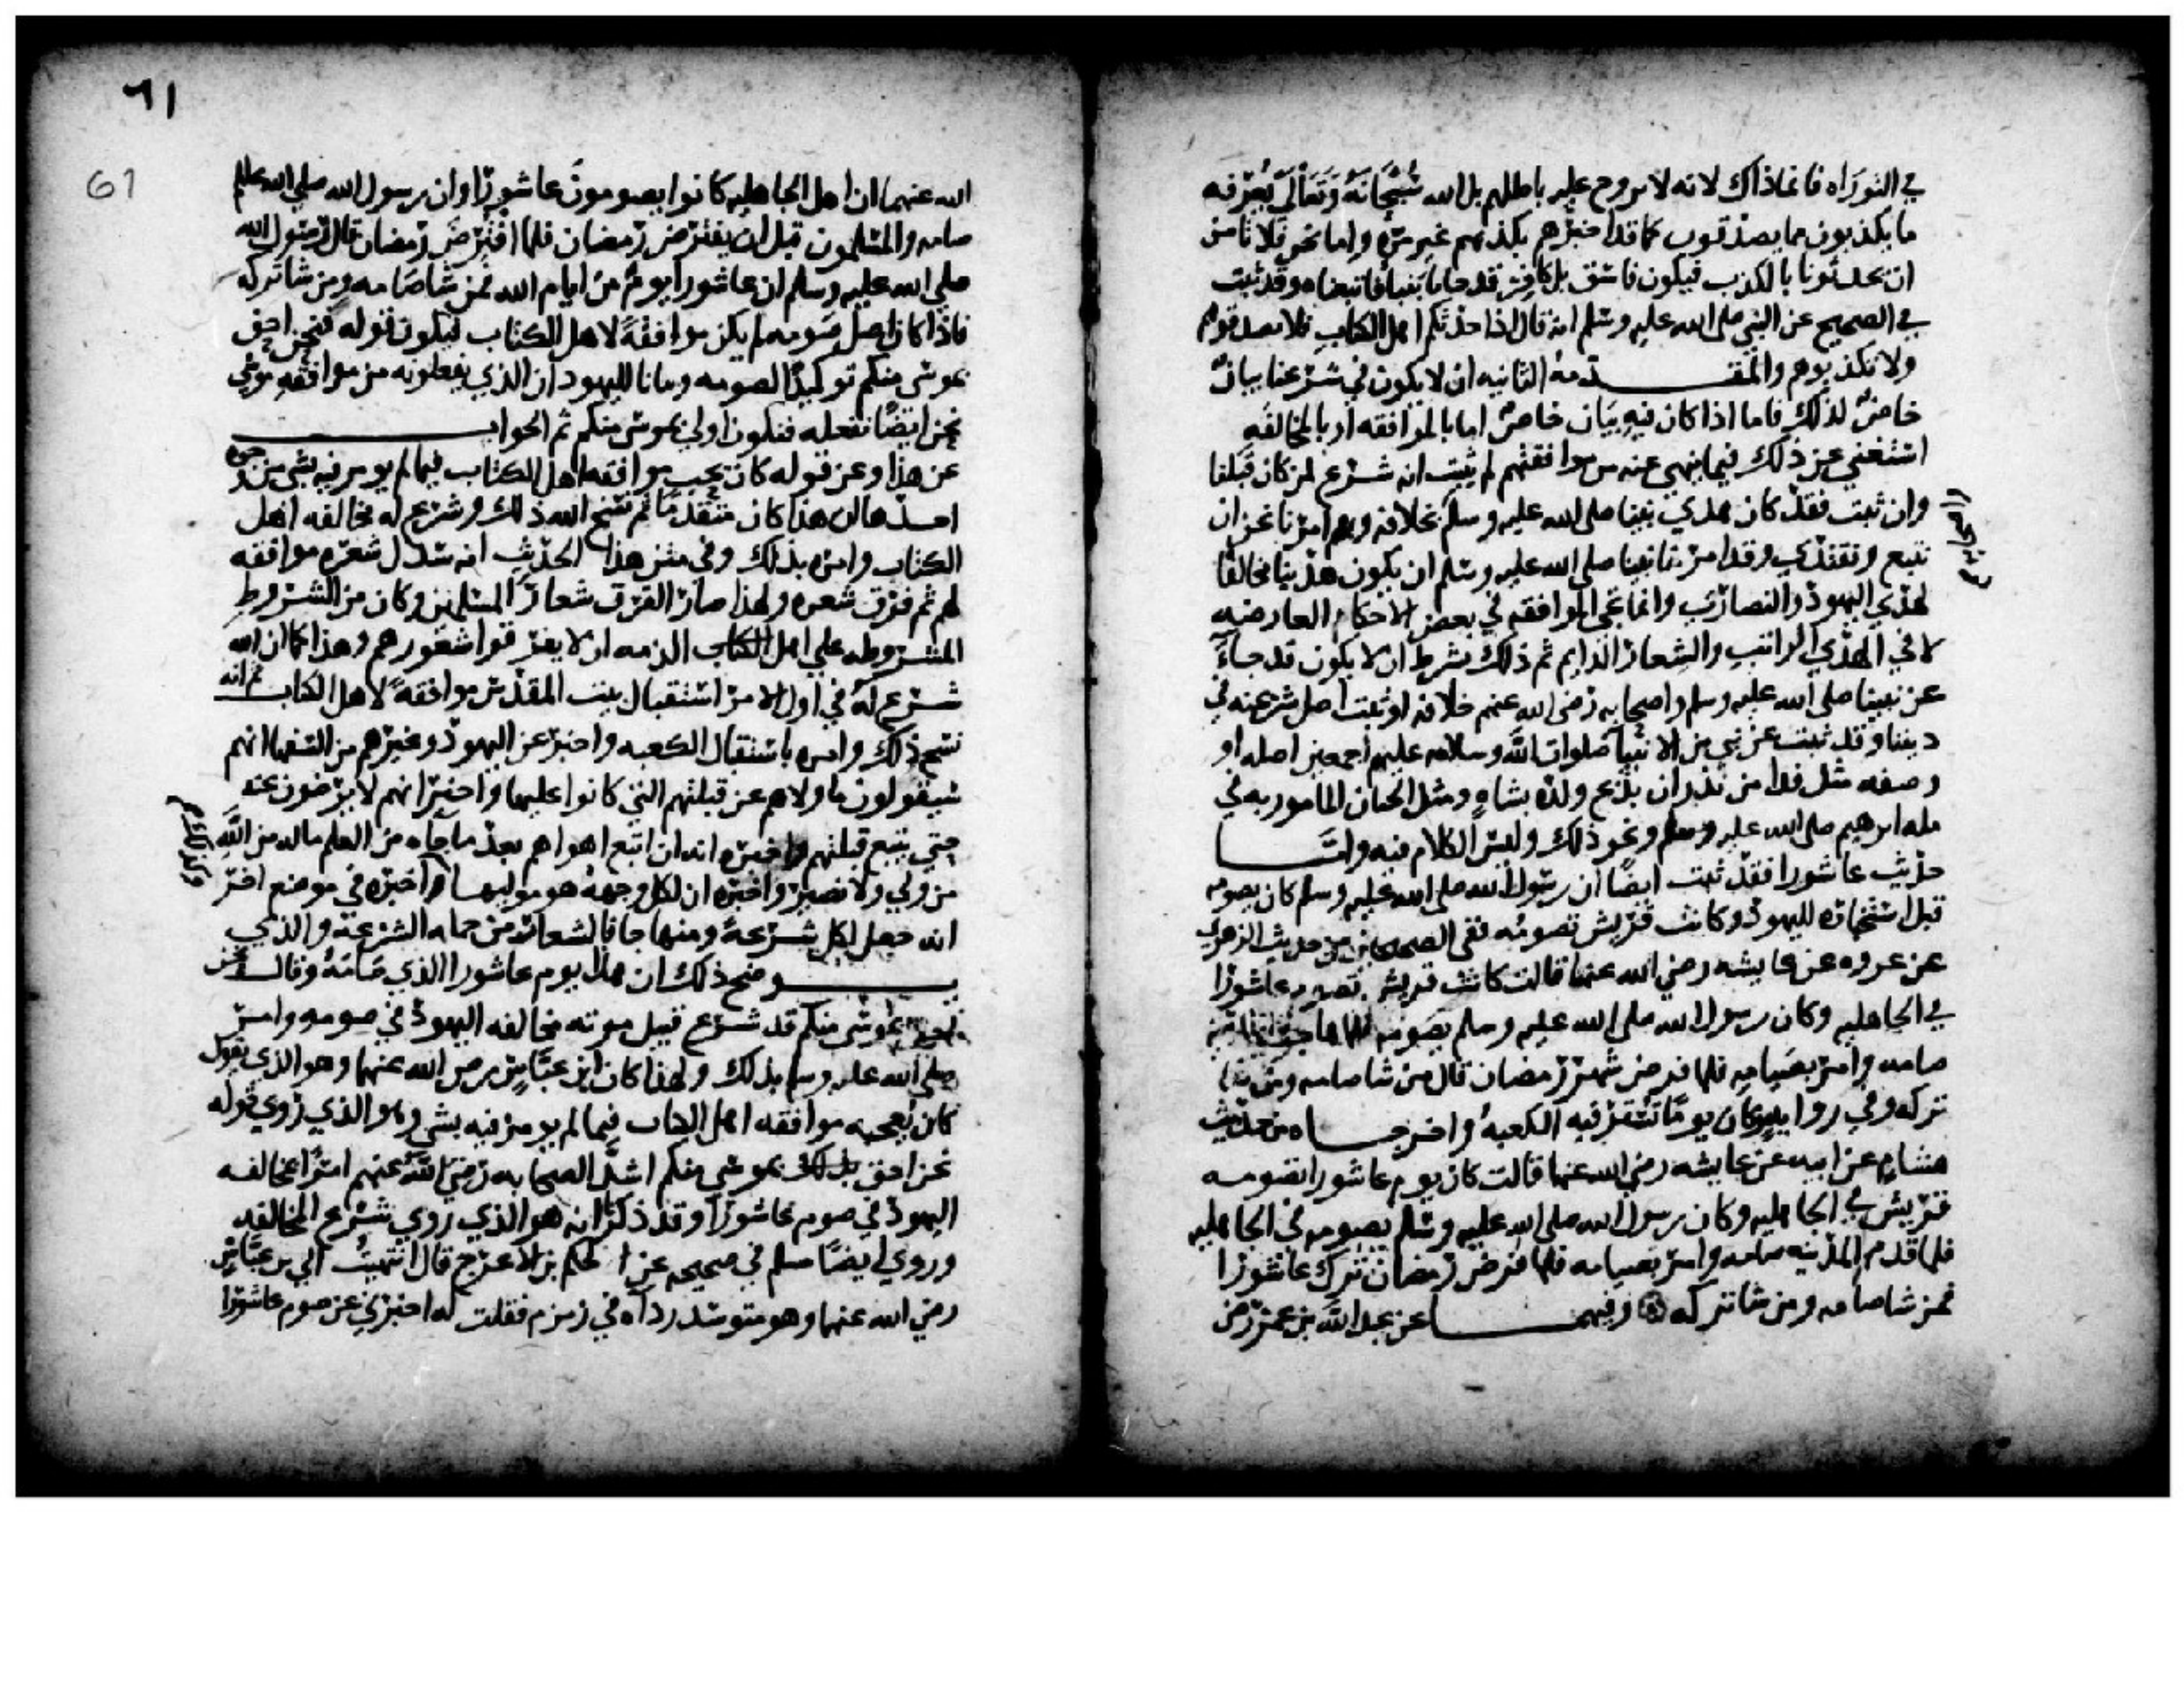 في التوراه فانما ذاك لانه لا يروح عليه باطلهم بل الله سُبْحَانَهُ وَتَعَالَى يُعَرّفه
ما يكذبون مما يصدقون كما قد اخبرهم بكذبهم غير مرّه واما نحن فلا نامن
ان يحدثونا بالكذب فيكون فاسق بل كافر قد جانا بنبا فاتبعناه وقد ثبت
في الصحيح عن النبي صلى الله عليه وسلم انه قال اذا حدثكم اهل الكتاب فلا تصدقوهم
ولا تكذبوهم والمقدمة الثانيه ان لا يكون في شرعنا بيان
خاص لذلك فاما اذا كان فيه بيان خاص اما بالموافقه او بالمخالفه
استغني عن ذلك فيما ينهي عنه من موافقتهم لم يثبت انه شرع لمن كان قبلنا
وان ثبت فقد كان هدي نبينا صلى الله عليه وسلم بخلافه وبهم امرنا نحن ان
نتبع ونقتدي وقد امرنا نبينا صلى الله عليه وسلم ان يكون هدينا مخالفا
لهدي اليهود والنصارى وانما تجي الموافقه في بعض الاحكام العارضه
لا في الهدي الراتب والشعار الدايم ثم ذلك بشرط ان لا يكون قد جاء
عن نبينا صلى الله عليه وسلم واصحابه رضى الله عنهم خلافه او ثبت اصل شرعه في
ديننا وقد ثبت عن نبي من الانبيا صلوات الله وسلامه عليهم اجمعين اصله او
وصفه مثل فدا من نذر ان يذبح ولده بشاه ومثل الختان المامور به في
مله ابرهيم صلى الله عليه وسلم ونحو ذلك وليس الكلام فيه وامـــا
حديث عاشورا فقد ثبت ايضًا ان رسول الله صلى الله عليه وسلم كان يصومه
قبل استخباره لليهود وكانت قريش تصومُه ففي الصحيحين من حديث الزهري
عن عروه عن عايشه رضي الله عنها قالت كانت قريش تصوم عاشورا
في الجاهليه وكان رسول الله صلى الله عليه وسلم يصومه فلما هاجر الى المدينه
صامه وامر بصيامه فلما فرض شهر رمضان قال من شا صامه ومن شا
تركه وفي روايه وكان يومًا تستر فيه الكعبه واخرجـــاه من حديث
هشام عن ابيه عن عايشه رضي الله عنها قالت كان يوم عاشورا تصومه
قريش في الجاهليه وكان رسول الله صلى الله عليه وسلم يصومه في الجاهليه
فلما قدم المدينه صامه وامر بصيامه فلما فرض رمضان ترك عاشورا
فمن شا صامه ومن شا تركه وفيهمـــا عن عبد الله بن عمر رضى
٦١
61
الله عنهما ان اهل الجاهليه كانوا يصومون عاشورا وان رسول الله صلى الله عليه
صامه والمسلمون قبل ان يفترض رمضان فلما افترض رمضان قال رسول الله
صلى الله عليه وسلم ان عاشورا يوم من ايام الله فمن شا صامه ومن شا تركه
فاذا كان اصل صومه لم يكن موافقة لاهل الكتاب فيكون قوله فنحن احق
بموسى منكم توكيدًا لصومه وبيانا لليهود ان الذي يفعلونه من موافقه موسى
نحن ايضًا نفعله فنكون اولى بموسى منكم ثم الجواب
عن هذا وعن قوله كان يحب موافقه اهل الكتاب فيما لم يومر فيه بشي من وجوه
احدها ان هذا كان متقدمًا ثم نسخ الله ذلك وشرع له مخالفه اهل
الكتاب وامره بذلك وفي متن هذا الحديث انه سدل شعره موافقه
لهم ثم فرق شعره ولهذا صار الفرق شعار المسلمين وكان من الشروط
المشروطه علي اهل الذمه ان لا يفرقوا شعورهم وهذا كما ان الله
شرع له في اول الامر استقبال بيت المقدس موافقةً لاهل الكتاب ثم انه
نسخ ذلك وامره باستقبال الكعبه واخبر عن اليهود وغيرهم من السفها انهم
سيقولون ما ولاهم عن قبلتهم التي كانوا عليها واخبر انهم لا يرضون عنه
حتي يتبع قبلتهم واخبره انه ان اتبع اهواهم بعد ما جاه من العلم ماله من الله
من ولي ولا نصير واخبره ان لكل وجهه هو موليها واخبره في موضع اخر
انه جعل لكل شرعة ومنهاجا فالشعار من جمله الشرعة والذي
يـــوضح ذلك ان هذا يوم عاشورا الذي صامَهُ وقال نحن
احق بموسى منكم قد شرع قبيل موته مخالفه اليهود في صومه وامر
صلى الله عليه وسلم بذلك ولهذا كان ابن عباس رضى الله عنهما وهو الذي يقول
كان يُعجبه موافقه اهل الكتاب فيما لم يومر فيه بشي وهو الذي روي قوله
نحن احق بموسى منكم اشد الصحابه رضى الله عنهم امرًا بمخالفه
اليهود في صوم عاشورا وقد ذكرنا انه هو الذي روي شرع المخالفه
وروي ايضًا مسلم في صحيحه عن الحكم بن الاعرج قال انتهيت الى بن عباس
رضي الله عنهما وهو متوسد رداه في زمزم فقلت له اخبرني عن صوم عاشورا